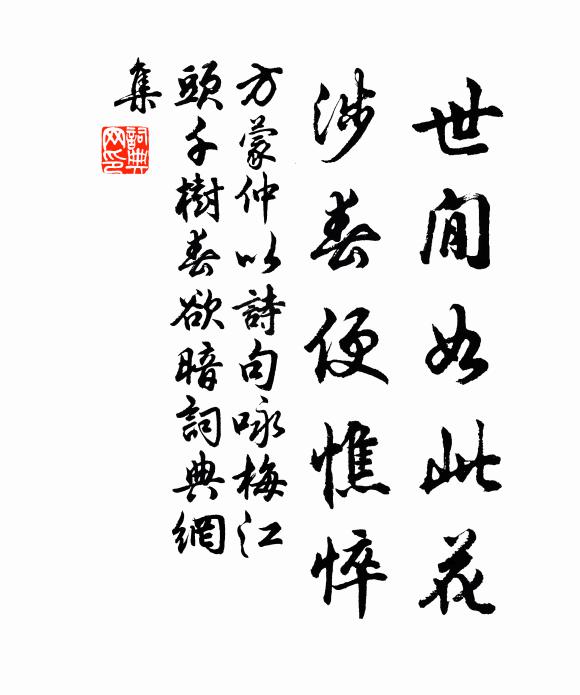 世間如此花
涉春便憔悴
方蒙仲以詩句咏梅江
頭千樹春欲暗詞典網
集
詞典
网印